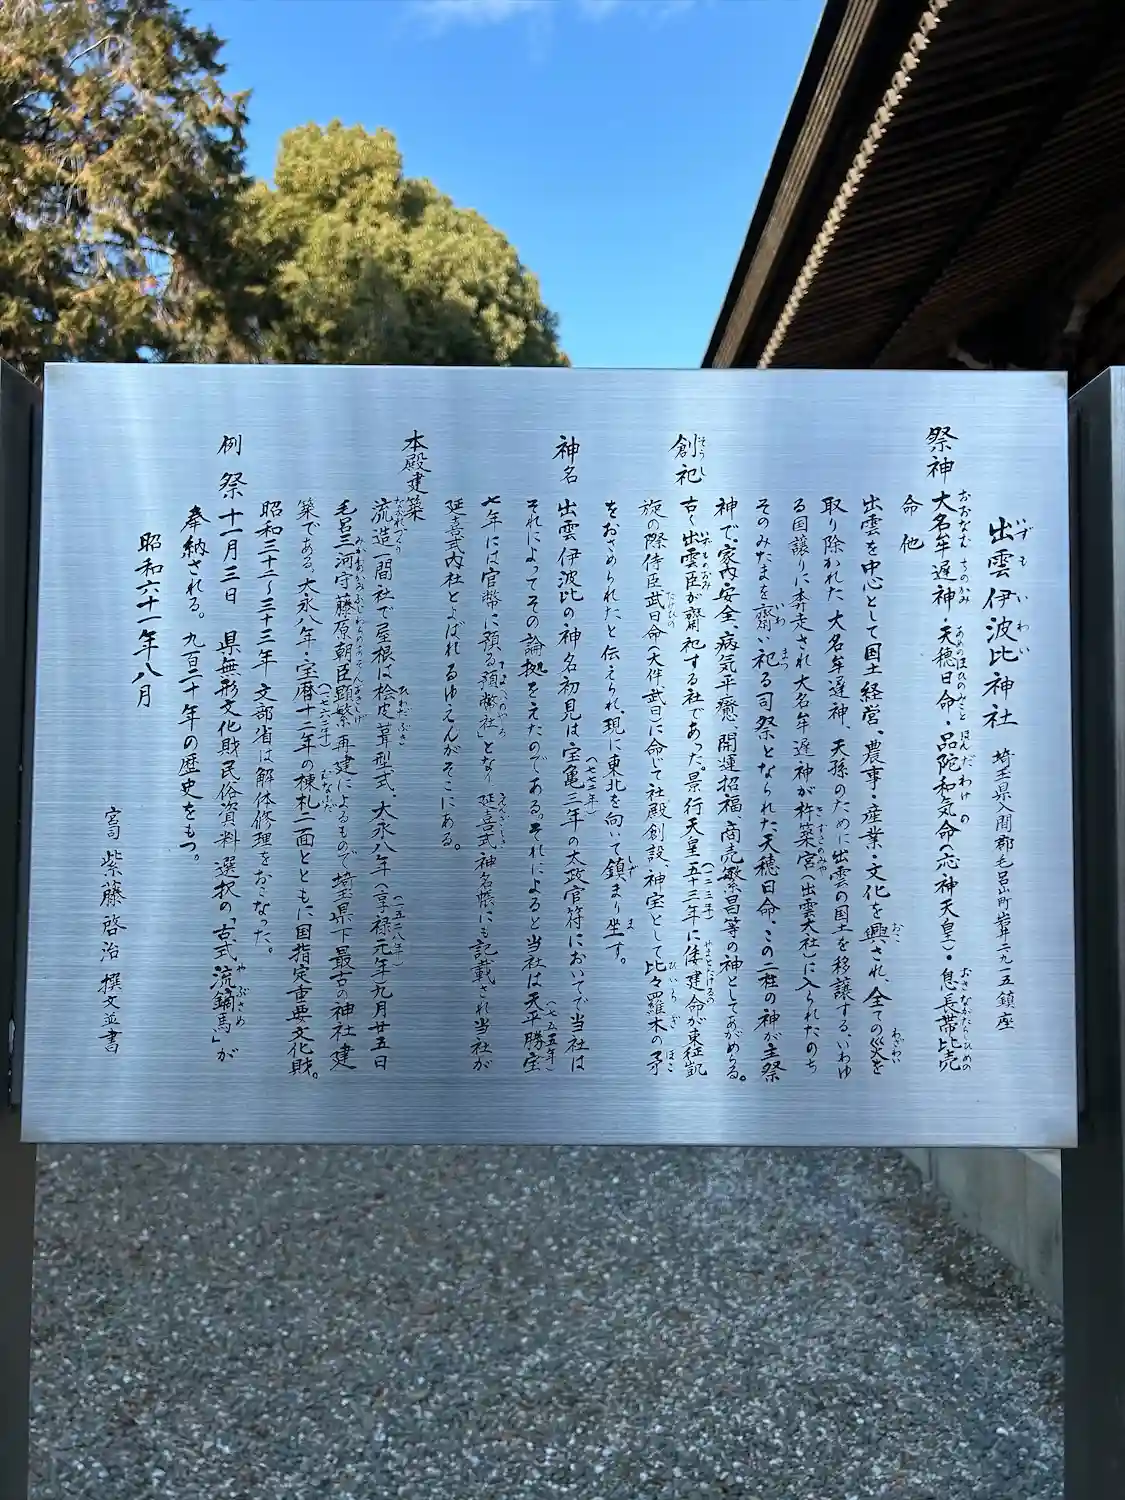 出雲伊波比神社 埼玉県入間郡毛呂山町岩井二九一五鎮座
祭神 大名牟遅神・天穂日命・品陀和気命(応神天皇)・息長帯比売
命 他
出雲を中心として国土経営、農事・産業・文化を興され、全ての災を
取り除かれた大名牟遅神、天孫のために出雲の国土を移譲する、いわゆ
る国譲りに奔走され大名牟遅神が杵築宮(出雲大社)に入られたのち
そのみたまを齋い祀る司祭となられた天穂日命、この二柱の神が主祭
神で、家内安全、病気平癒、開運招福、商売繁昌等の神としてあがめらる。
創祀 古く出雲臣が齋祀する社であった。景行天皇五十三年(一二三年)に倭建命が東征凱
旋の際侍臣武日命(大伴武日)に命じて社殿創設、神宝として比々羅木の矛
をおさめられたと伝えられ、現に東北を向いて鎮まり坐す。
神名 出雲伊波比の神名初見は宝亀三年(七七二年)の太政官符においてで当社は
それによってその論拠をえたのである。それによると当社は天平勝宝
七年(七五五年)には官幣に預る「預幣社」となり延喜式神名帳にも記載され当社が
延喜式内社とよばれるゆえんがそこにある。
本殿建築 流造一間社で屋根は桧皮葺型式、大永八年(享禄元年)(一五二八年)九月廿五日
毛呂三河守藤原朝臣顕繁再建によるもので埼玉県下最古の神社建
築である。大永八年・宝暦十二年(一七六二年)の棟札二面とともに国指定重要文化財。
昭和三十二〜三十三年文部省は解体修理をおこなった。
例祭 十一月三日 県無形文化財民俗資料選択の「古式流鏑馬」が
奉納される。九百二十年の歴史をもつ。
昭和六十一年八月
宮司 紫藤啓治 撰文並書